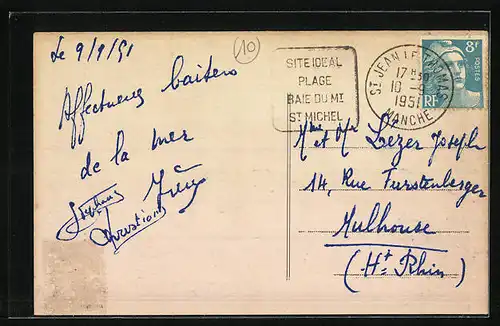 Le 9/9/51
10
SITE IDEAL
PLAGE
BAIE DU MT
ST MICHEL
ST JEAN LE THOMAS
17 H 30
10 - 9
1951
MANCHE
8F
POSTES
RF
Affectueux baisers
de la mer
Mme et Mr Lezer Joseph
14, Rue Furstenberger
Mulhouse
(Ht Rhin)